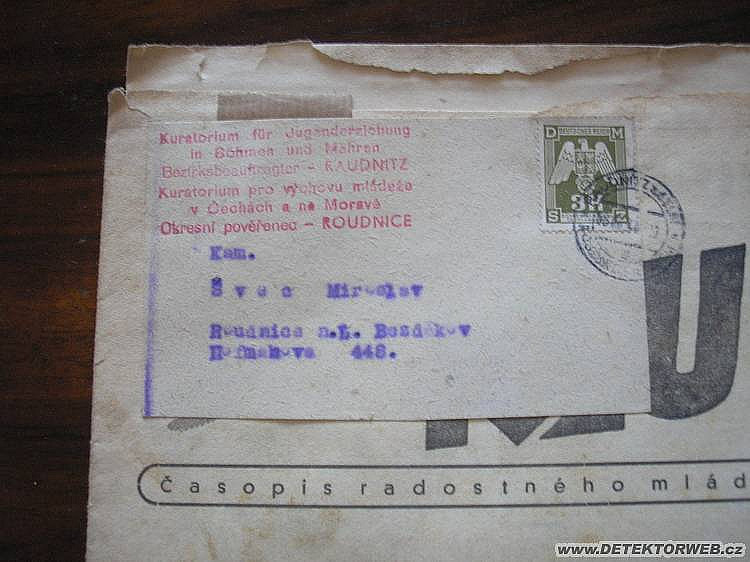 Kuratorium für Jugenderziehung
in Böhmen und Mähren
Bezirksbeauftragter - RAUDNITZ
Kuratorium pro výchovu mládeže
v Čechách a na Moravě
Okresní pověřenec - ROUDNICE
DEUTSCHES REICH
D M
S Z
Kam.
Švec Miroslav
Roudnice n.L. Bezděkov
448.
MU
Časopis radostného mlád
www.DETEKTORWEB.cz